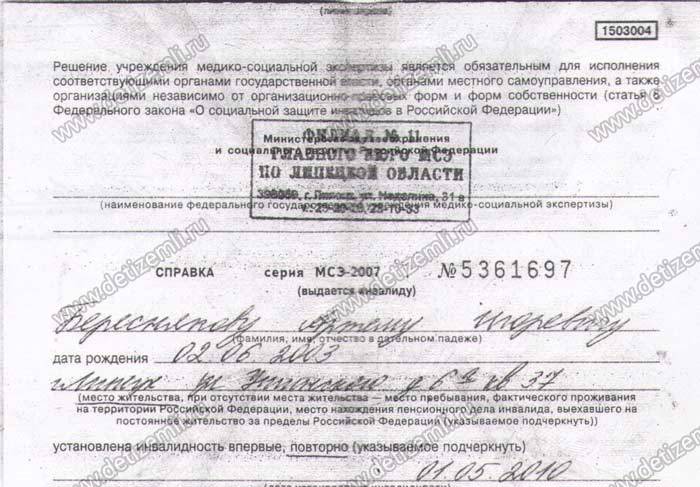 (линия отреза)
1503004
Решение учреждения медико-социальной экспертизы является обязательным для исполнения
соответствующими органами государственной власти, органами местного самоуправления, а также
организациями независимо от организационно-правовых форм и форм собственности (статья 8
Федерального закона «О социальной защите инвалидов в Российской Федерации»)
Министерство здравоохранения
и социального развития Российской Федерации
ФИЛИАЛ № 11
ГЛАВНОГО БЮРО МСЭ
ПО ЛИПЕЦКОЙ ОБЛАСТИ
г. Липецк, ул.
(наименование федерального государственного учреждения медико-социальной экспертизы)
СПРАВКА серия МСЭ-2007 №5361697
(выдается инвалиду)
Артему Игоревичу
(фамилия, имя, отчество в дательном падеже)
дата рождения 02 06 2003
г Липецк ул д 6 кв 37
(место жительства, при отсутствии места жительства — место пребывания, фактического проживания
на территории Российской Федерации, место нахождения пенсионного дела инвалида, выехавшего на
постоянное жительство за пределы Российской Федерации (указываемое подчеркнуть))
установлена инвалидность впервые, повторно (указываемое подчеркнуть)
01.05.2010
www.detizemli.ru